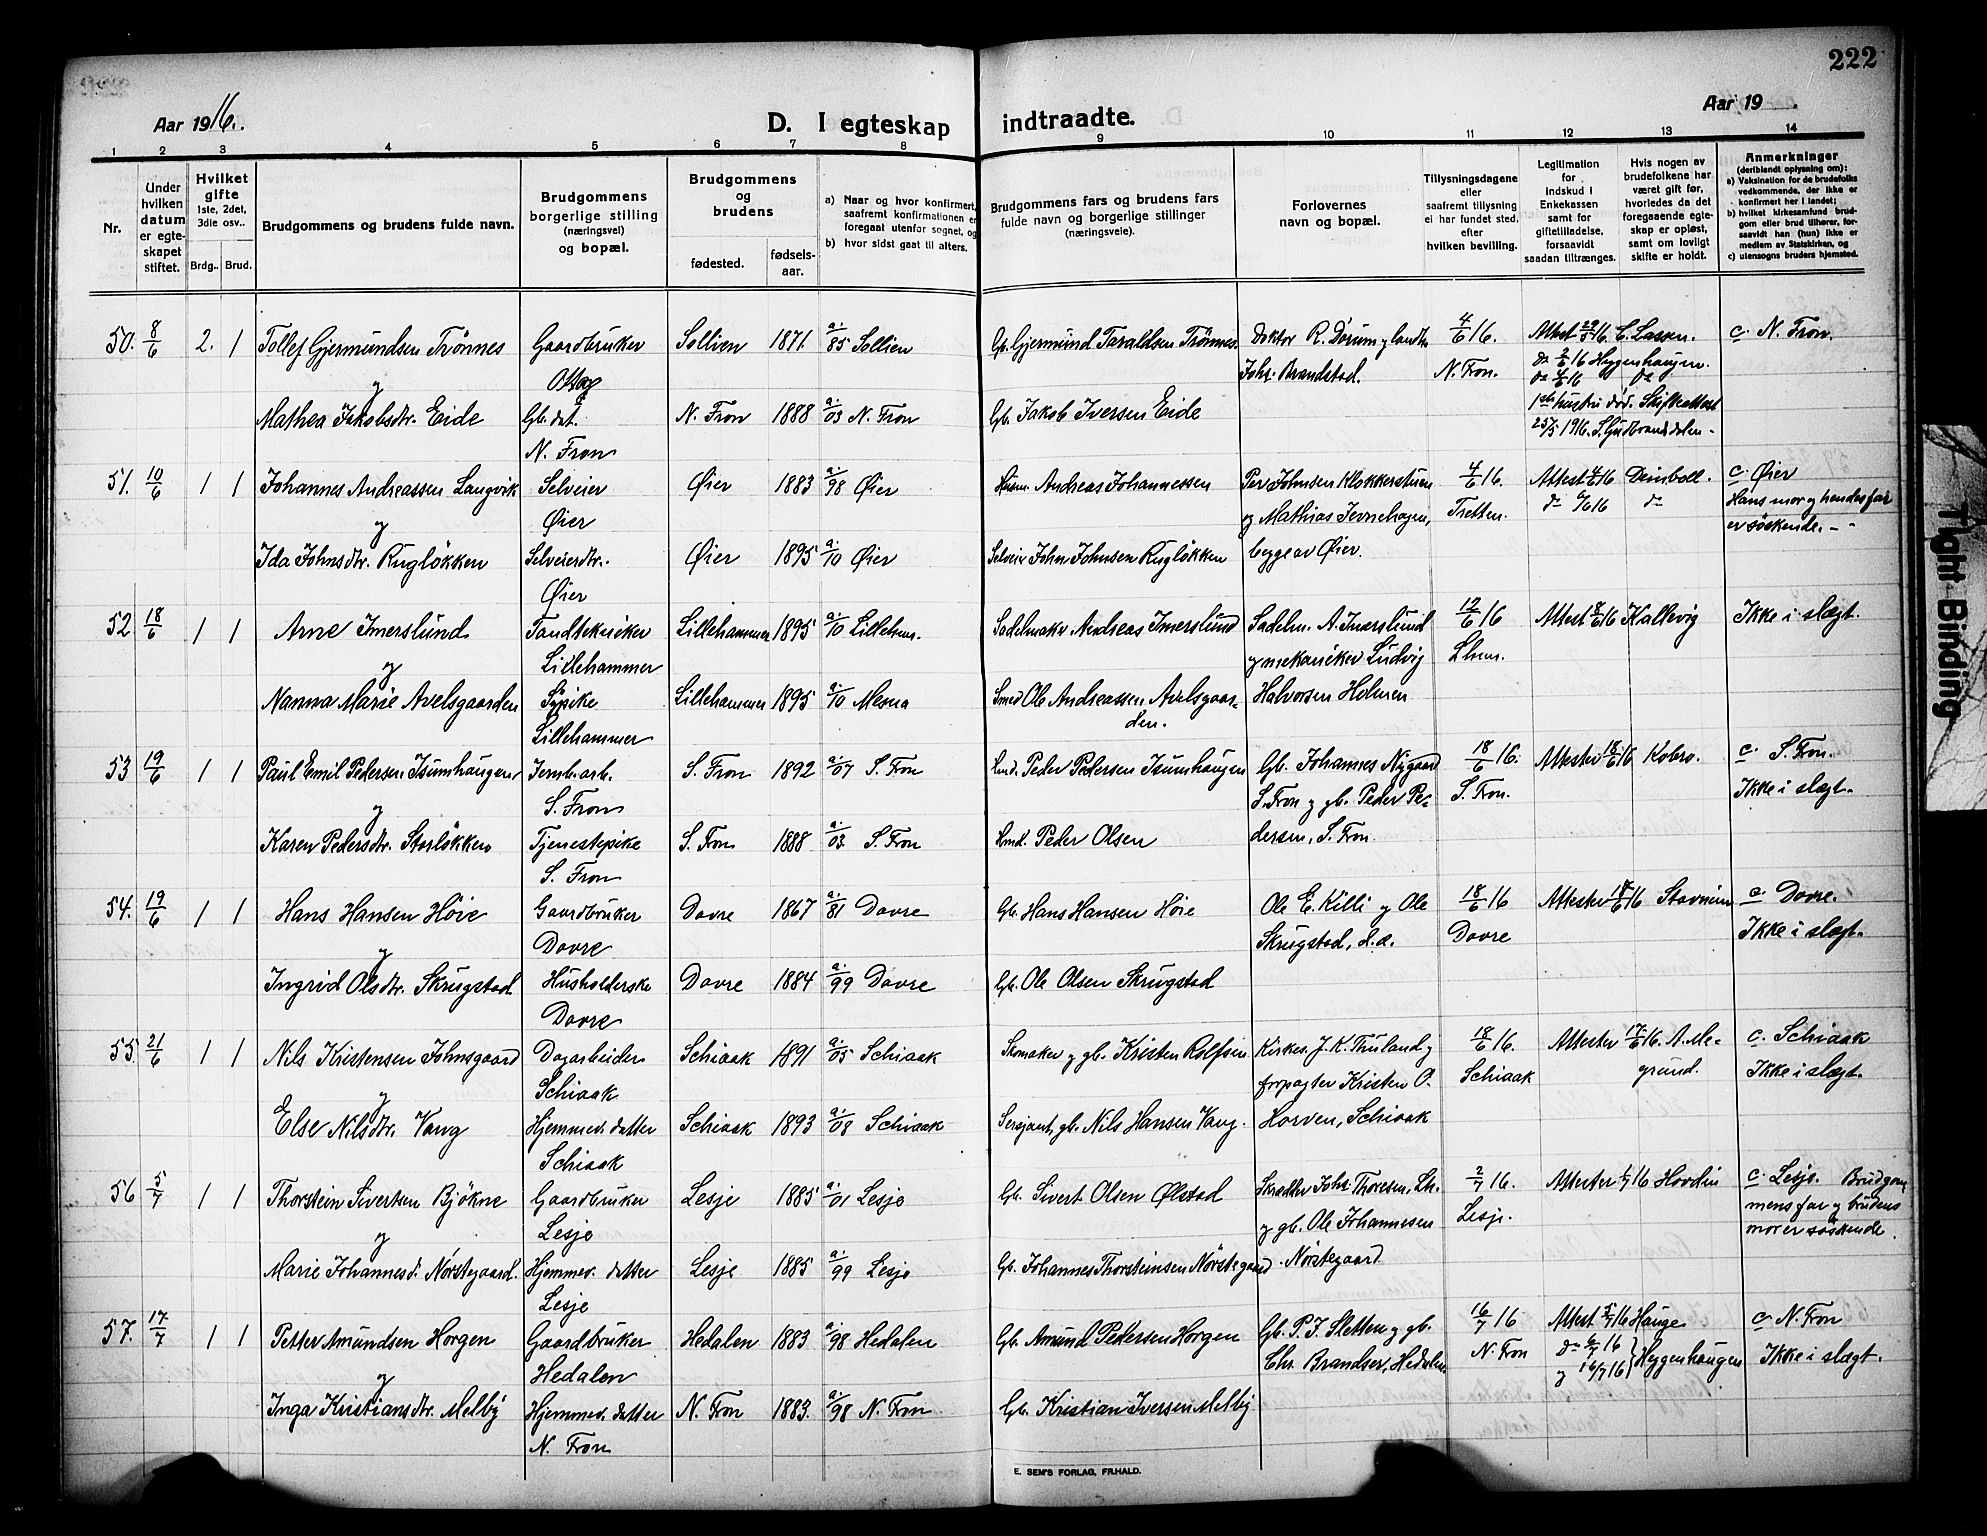 222
Aar 1916.
D. I egteskap indtraadte.
Aar 19 .
1 2 3 4 5 6 7 8 9 10 11 12 13 14
Nr.
Under hvilken datum er egteskapet stiftet.
Hvilket gifte
1ste, 2det, 3die osv..
Brdg.. Brud.
Brudgommens og brudens fulde navn.
Brudgommens borgerlige stilling (næringsvei) og bopæl.
Brudgommens og brudens
fødested. fødselsaar.
a) Naar og hvor konfirmert, saafremt konfirmationen er foregaat utenfor sognet, og
b) hvor sidst gaat til alters.
Brudgommens fars og brudens fars fulde navn og borgerlige stillinger (næringsveie).
Forlovernes navn og bopæl.
Tillysningsdagene eller saafremt tillysning ei har fundet sted, efter hvilken bevilling.
Legitimation for indskud i Enkekassen samt for giftetilladelse, forsaavidt saadan tiltrænges.
Hvis nogen av brudefolkene har været gift før, hvorledes da det foregaaende egteskap er opløst, samt om lovligt skifte er holdt.
Anmerkninger (deriblandt oplysning om):
a) Vaksination for de brudefolks vedkommende, der ikke er konfirmert her i landet;
b) hvilket kirkesamfund brudgom eller brud tilhører, forsaavidt han (hun) ikke er medlem av Statskirken, og
c) utensogns bruders hjemsted.
50. 8/6 2. 1 Tollef Gjermundsen Trönnes Gaardbruker Sollien 1871 a./85 Sollien Gb. Gjermund Taraldsen Trönnes. Doktor R. Dorum g landh. 4/6 16. Attest 29/5 16. C. Lassen. c. N. Fron.
y Otta Joh. Brandstad. N. Fron. do 2/6 16 Heggenhaugen.
do 4/6 16 do
Mathea Jakobsdtr. Eide Gb. dat. N. Fron 1888 a/03 N. Fron Gb. Jakob Iversen Eide 1ste hustru död. Skifteattest
N. Fron 25/5 1916. S. Gudbrandsdalen.
51. 10/6 1 1 Johannes Andreassen Langvik Selveier Øier 1883 a./98 Øier Husm. Andreas Johannessen Per Johnsen Klokkerstuen 4/6 16. Attest 4/6 16 Deinboll. c. Øier
y Øier y Mathias Jevnehagen, Tretten. do 9/6 16 do Hans mor y hendes far
er söskende.
Ida Johnsdtr. Ruglökken Selveierdtr. Øier 1895 a./10 Øier Selveier John Johnsen Ruglökken begge av Øier.
Øier
52 18/6 1 1 Arne Imerslund Tandtekniker Lillehammer 1895 a./10 Lilleham. Sadelmaker Andreas Imerslund Sadelm. A. Imerslund 12/6 16 Attest 8/6 16 Kallevig Ikke i slægt.
y Lillehammer y mekaniker Ludvig Lham.
Nanna Marie Avelsgaarden Pike Lillehammer 1895 a./10 Mesna Smed Ole Andreassen Avelsgaarden. Halvorsen Holmen
Lillehammer
53 19/6 1 1 Paul Emil Pedersen Isumhaugen Jernb.arb. S. Fron 1892 a/07 S. Fron Hmd. Peder Pedersen Isumhaugen Gb. Johannes Nygaard 18/6 16. Attester 18/6 16 Kobro. c. S. Fron.
y S. Fron S. Fron y gb. Peder Pe- S. Fron. Ikke i slægt.
Karen Pedersdtr. Storlökken Tjenestepike S. Fron 1888 a/03. S. Fron Hmd. Peder Olsen dersen, S. Fron.
S. Fron
54. 19/6 1 1 Hans Hansen Höie Gaardbruker Dovre 1867 a./81 Dovre Gb. Hans Hansen Höie Ole E. Killi y Ole 18/6 16 Attester 18/6 16 Stavnum c. Dovre.
y Dovre Skrugstad, d.a. Dovre Ikke i slægt.
Ingrid Olsdtr. Skrugstad Husholderske Dovre 1884 a./99 Dovre Gb. Ole Olsen Skrugstad
Dovre
55 21/6 1 1 Nils Kristensen Johnsgaard Dagarbeider Schiaak 1891 a/05 Schiaak Skomaker y gb. Kristen Rolfsen Kirkes. J. K. Thuland y 18/6 16. Attester 17/6 16. A. Me- c. Schiaak
y Schiaak forpagter Kristen O. Schiaak grund. Ikke i slægt.
Else Nilsdtr. Vang Hjemmev. datter Schiaak 1893 a./08 Schiaak Sersjant, gb. Nils Hansen Vang. Horven, Schiaak
Schiaak
56 5/7 1 1 Thorstein Sivertsen Bjökne Gaardbruker Lesje 1885 a./01 Lesje Gb. Sivert Olsen Ølstad Skrædder Joh. Thoresen, Lh. 2/7 16. Attester 1/7 16 Hovdin c. Lesje. Brudgom
y Lesje y gb. Ole Johannesen Lesje. mens far y brudens
mor er söskende.
Marie Johannesd. Nörstegaard. Hjemmev. datter Lesje 1885 a./99 Lesje Gb. Johannes Thorsteinsen Nörstegaard Nörstegaard
Lesje
57. 17/7 1 1 Petter Amundsen Horgen Gaardbruker Hedalen 1883 a./98 Hedalen Gb. Amund Pedersen Horgen Gb. P. J. Sletten y gb. 16/7 16 Attest 5/7 16 Hauge c N. Fron
y Hedalen Chr. Brandser, Hedalen N. Fron do 6/7 16 Ikke i slægt.
y 16/7 16 Heggenhaugen
Inga Kristiansdtr. Melby Hjemmev. datter N. Fron 1883. a./98 N. Fron. Gb. Kristian Iversen Melby
N. Fron
E. SEM'S FORLAG, FR.HALD.
Tight Binding